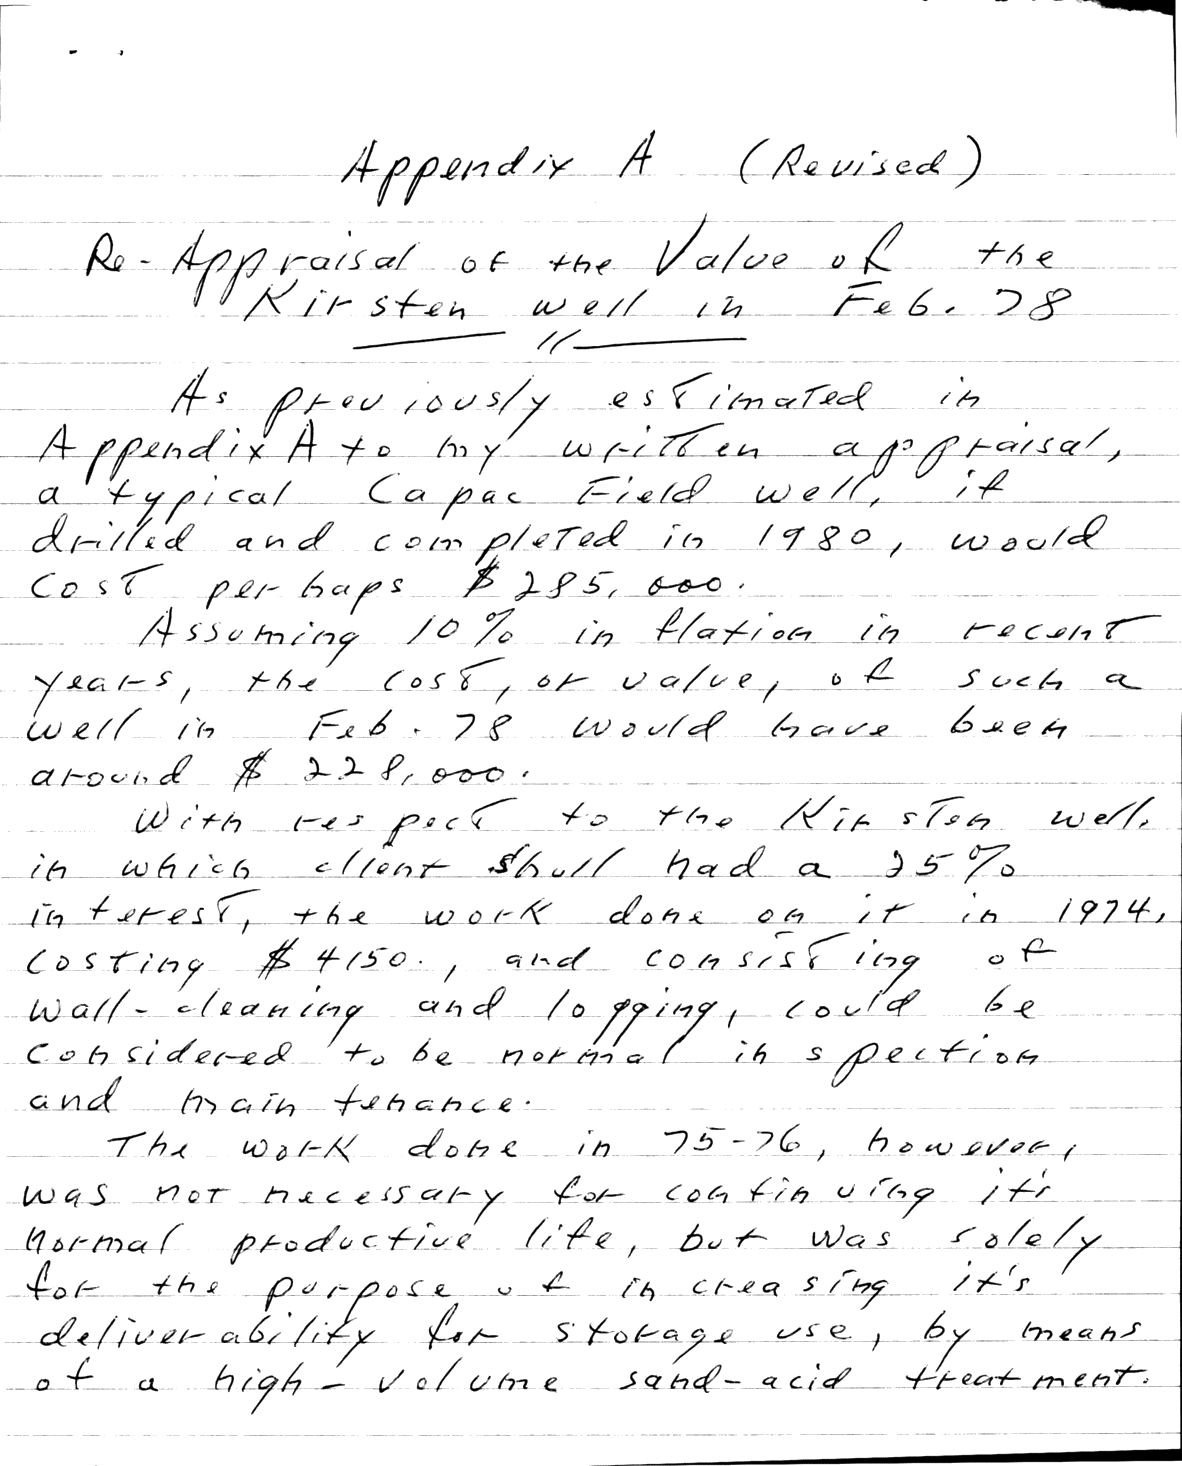 Appendix A (Revised)
Re-Appraisal of the Value of the
Kirsten well in Feb. 78
As previously estimated in
Appendix A to my written appraisal,
a typical Capac Field well, if
drilled and completed in 1980, would
cost perhaps $285,000.
Assuming 10% inflation in recent
years, the cost, or value, of such a
well in Feb. 78 would have been
around $228,000.
With respect to the Kirsten well,
in which client Shull had a 25%
interest, the work done on it in 1974,
costing $4150., and consisting of
wall-cleaning and logging, could be
considered to be normal inspection
and maintenance.
The work done in 75-76, however,
was not necessary for continuing it's
normal productive life, but was solely
for the purpose of increasing it's
deliverability for storage use, by means
of a high-volume sand-acid treatment.